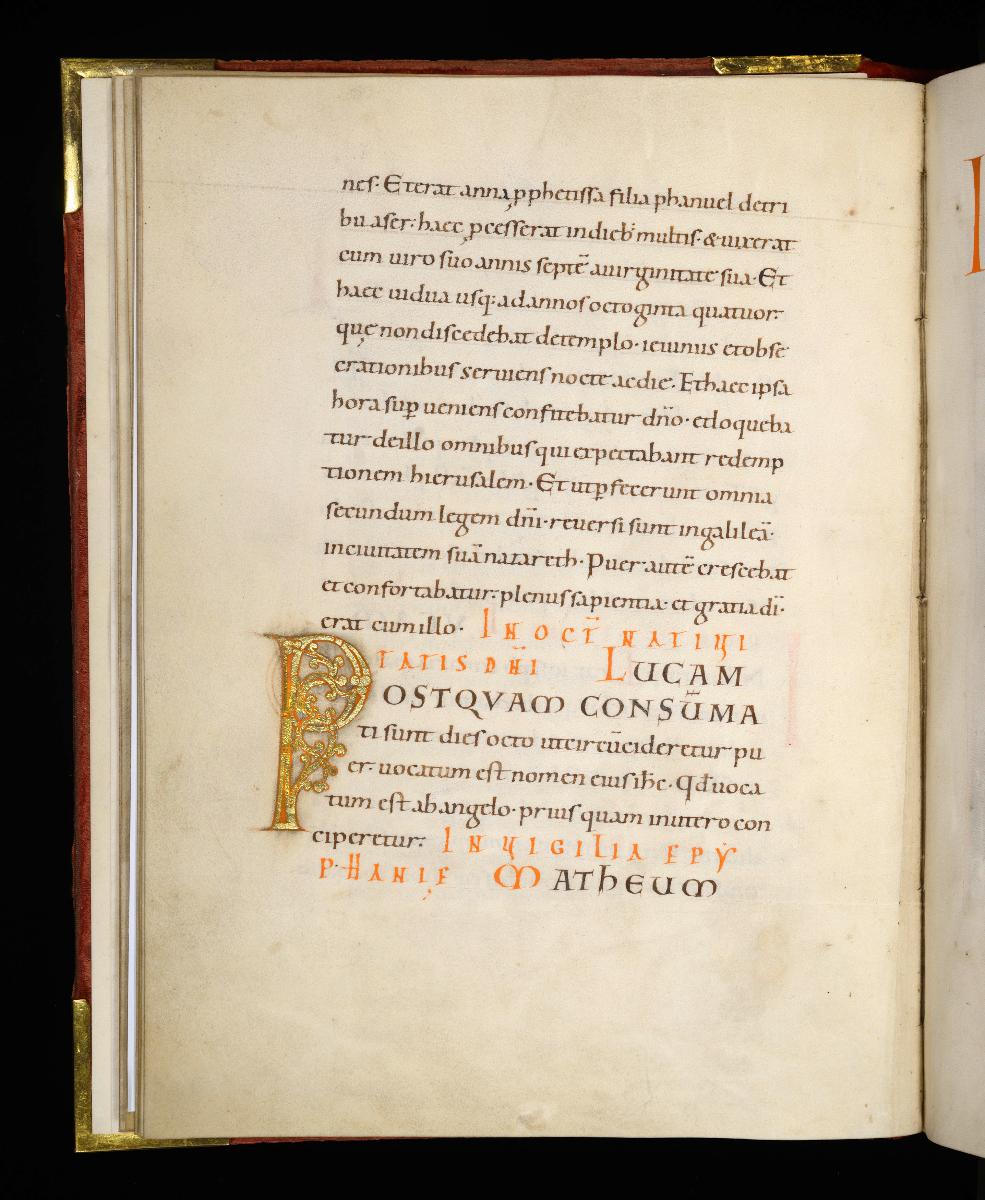 nes· Et erat anna ꝓphetissa filia phanuel de tri
bu aser· haec ꝓcesserat in dieb; multis· & uixerat
cum uiro suo annis septē a uirginitate sua· Et
haec uidua usq; ad annos octoginta quatuor·
quę non discedebat de templo· ieiuniis et obse
crationibus seruiens nocte ac die· Et haec ipsa
hora sup̱ueniens confitebatur dn̄o· et loqueba
tur de illo omnibus qui expectabant redemp
tionem hierusalem· Et ut ꝑfecerunt omnia
secundum legem dn̄i· reuersi sunt in galileā·
in ciuitatem suā nazareth· Puer autē crescebat
et confortabatur· plenus sapientia· et gratia dī·
erat cum illo· IN OCT̄ NATIUI
TATIS DN̄I LUCAM
POSTQVAM CONSŪMA
ti sunt dies octo ut circūcideretur pu
er· uocatum est nomen eius ih̄c· Qđ uoca
tum est ab angelo· prius quam in utero con
ciperetur· IN UIGILIA EPY
PHANIĘ MATHEUM